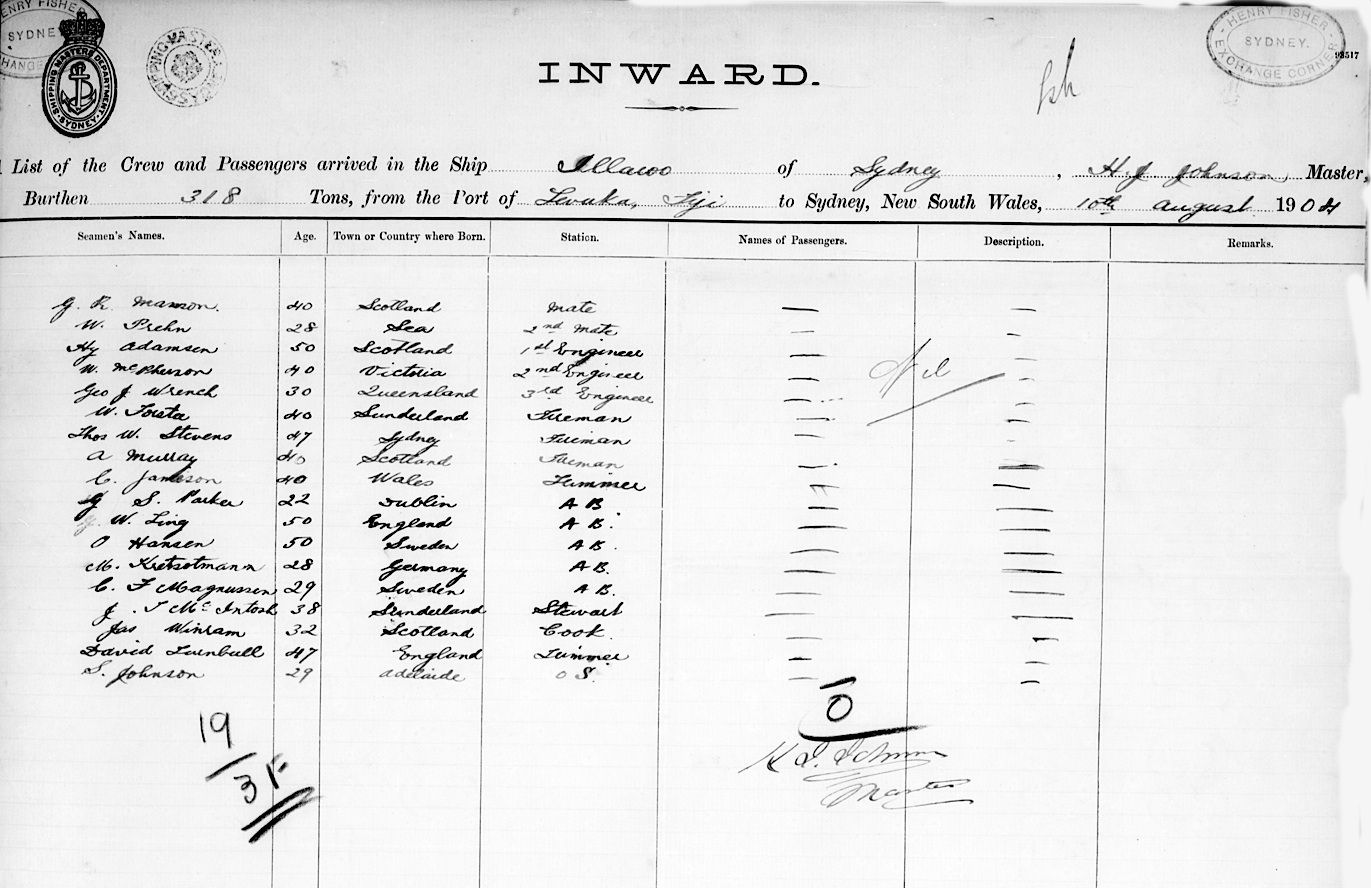 HENRY FISHER
SYDNEY
EXCHANGE
SHIPPING MASTERS DEPARTMENT
SYDNEY
SHIPPING MASTER
HENRY FISHER
SYDNEY.
EXCHANGE CORNER
93517
INWARD.
List of the Crew and Passengers arrived in the Ship Illawoo of Sydney, H. J Johnson Master,
Burthen 318 Tons, from the Port of Levuka, Fiji to Sydney, New South Wales, 10th august 1904
Seamen's Names. Age. Town or Country where Born. Station. Names of Passengers. Description. Remarks.
G. R. Manson. 40 Scotland Mate
W. Prehn 28 Sea 2nd Mate
Hy Adamsen 50 Scotland 1st Engineer
W. McPherson 40 Victoria 2nd Engineer
Nil
Geo J Wrench 30 Queensland 3rd Engineer
W. Forster 40 Sunderland Fireman
Thos W. Stevens 47 Sydney Fireman
A Murray 40 Scotland Fireman
C. Jamieson 40 Wales Trimmer
G S. Parker 22 Dublin A B
W. Ling 50 England A B.
O Hansen 50 Sweden A B.
M. Kretsotmann 28 Germany A B.
C. F Magnussen 29 Sweden A B.
J. T McIntosh 38 Sunderland Stewart
Jas Winram 32 Scotland Cook.
David Turnbull 47 England Trimmer
S. Johnson 29 Adelaide O S.
19
3F
0
H J. Johnson
Master